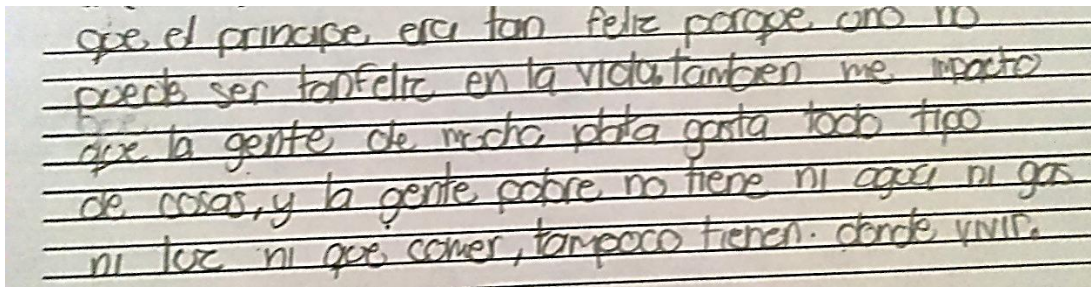 que el principe era tan feliz porque uno no
puede ser tanfeliz en la vida, tambien me impacto
que la gente de mucha plata gasta todo tipo
de cosas, y la gente pobre no tiene ni agua ni gas
ni luz ni que comer, tampoco tienen. donde vivir.